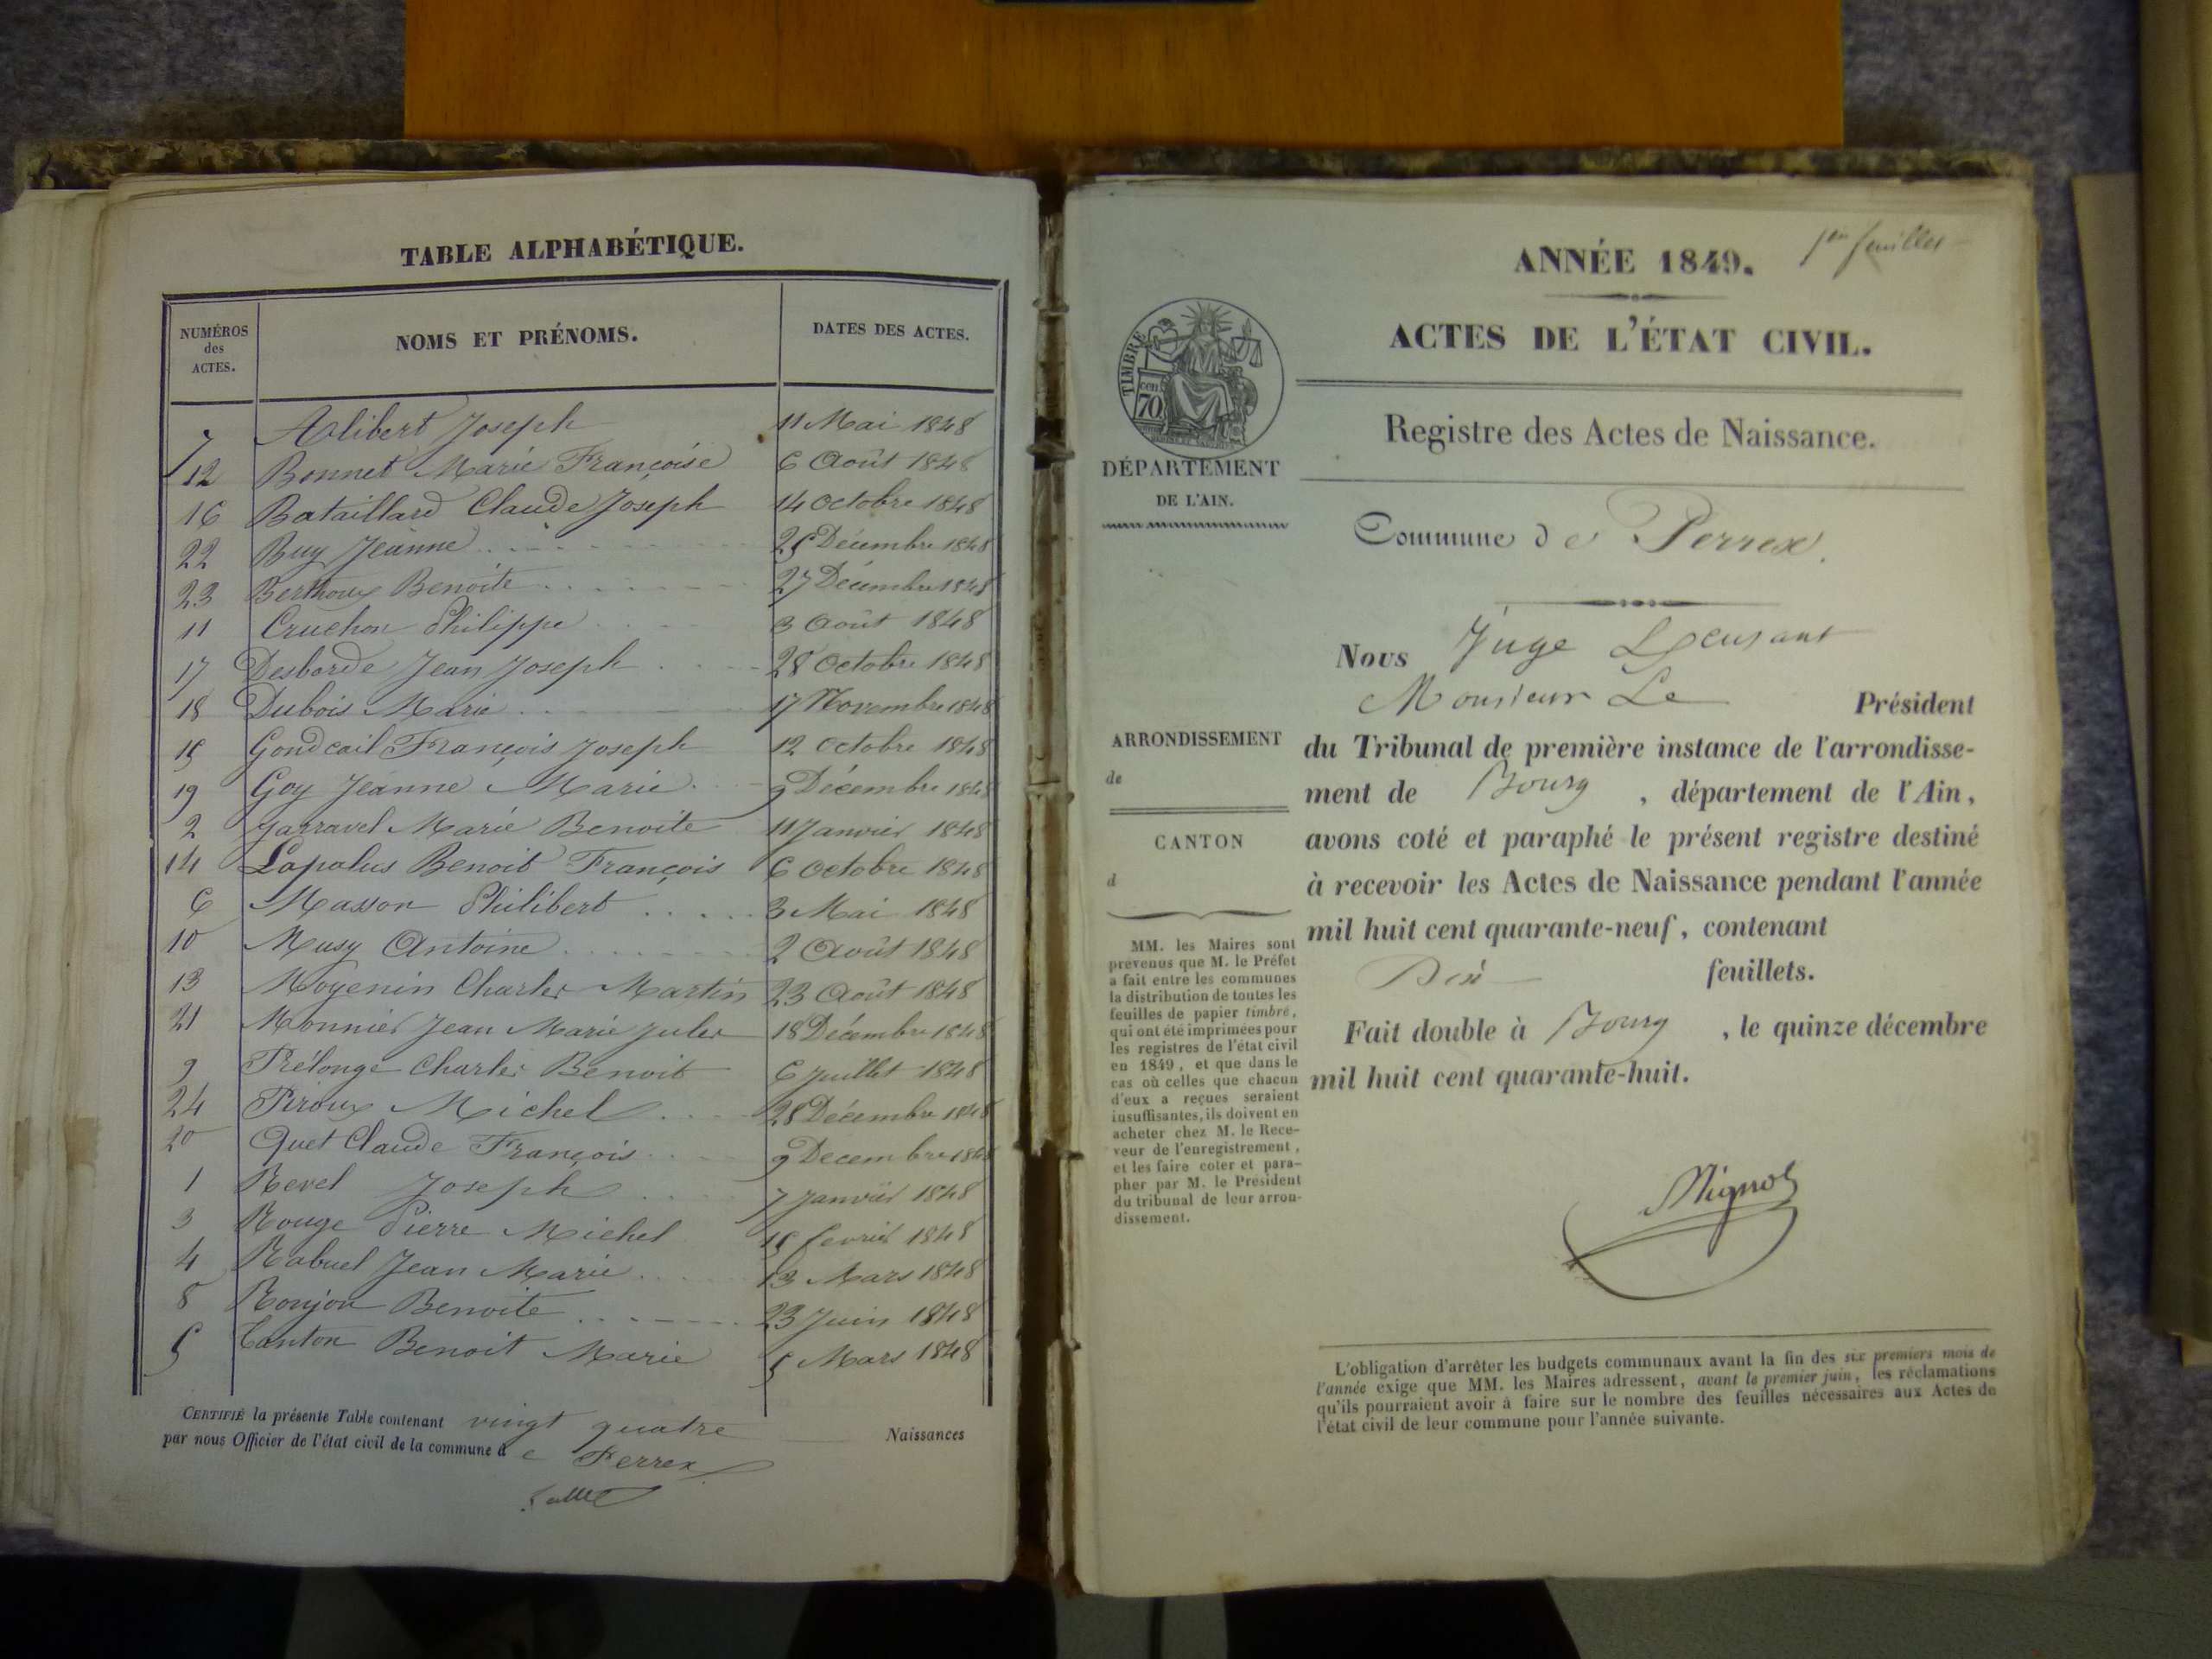 TABLE ALPHABÉTIQUE.
NUMÉROS
des
ACTES.
NOMS ET PRÉNOMS.
DATES DES ACTES.
7 Alibert Joseph 11 Mai 1848
12 Bonnet Marie Françoise 6 Août 1848
16 Bataillard Claude Joseph 14 Octobre 1848
22 Buy Jeanne 25 Décembre 1848
23 Berthoux Benoite 27 Décembre 1848
11 Cruchon Philippe 3 Août 1848
17 Desborde Jean Joseph 28 Octobre 1848
18 Dubois Marie 17 Novembre 1848
15 Gondcail François Joseph 12 Octobre 1848
19 Goy Jeanne Marie 9 Décembre 1848
2 Jarravel Marie Benoite 11 Janvier 1848
14 Lapalus Benoit François 6 Octobre 1848
6 Masson Philibert 3 Mai 1848
10 Musy Antoine 2 Août 1848
13 Moyenin Charles Martin 23 Août 1848
21 Monnier Jean Marie Jules 18 Décembre 1848
9 Prélonge Charles Benoit 6 Juillet 1848
24 Piroux Michel 28 Décembre 1848
20 Quet Claude François 9 Decembre 1848
1 Revel Joseph 7 Janvier 1848
3 Rouge Pierre Michel 15 fevrier 1848
4 Rabuel Jean Marie 13 Mars 1848
8 Ronjon Benoite 23 Juin 1848
5 Tanton Benoit Marie 5 Mars 1848
CERTIFIÉ la présente Table contenant vingt quatre Naissances
par nous Officier de l'état civil de la commune de Perrex
1er feuillet
ANNÉE 1849.
ACTES DE L'ÉTAT CIVIL.
Registre des Actes de Naissance.
TIMBRE
70 cen
DÉPARTEMENT
DE L'AIN.
Commune de Perrex.
Nous Juge
Monsieur Le Président
du Tribunal de première instance de l'arrondisse-
ment de Bourg , département de l'Ain,
avons coté et paraphé le présent registre destiné
à recevoir les Actes de Naissance pendant l'année
mil huit cent quarante-neuf, contenant
Dix feuillets.
Fait double à Bourg , le quinze décembre
mil huit cent quarante-huit.
ARRONDISSEMENT
de
CANTON
d
MM. les Maires sont
prévenus que M. le Préfet
a fait entre les communes
la distribution de toutes les
feuilles de papier timbré,
qui ont été imprimées pour
les registres de l'état civil
en 1849, et que dans le
cas où celles que chacun
d'eux a reçues seraient
insuffisantes, ils doivent en
acheter chez M. le Rece-
veur de l'enregistrement,
et les faire coter et para-
pher par M. le Président
du tribunal de leur arron-
dissement.
L'obligation d'arrêter les budgets communaux avant la fin des six premiers mois de
l'année exige que MM. les Maires adressent, avant le premier juin, les réclamations
qu'ils pourraient avoir à faire sur le nombre des feuilles nécessaires aux Actes de
l'état civil de leur commune pour l'année suivante.